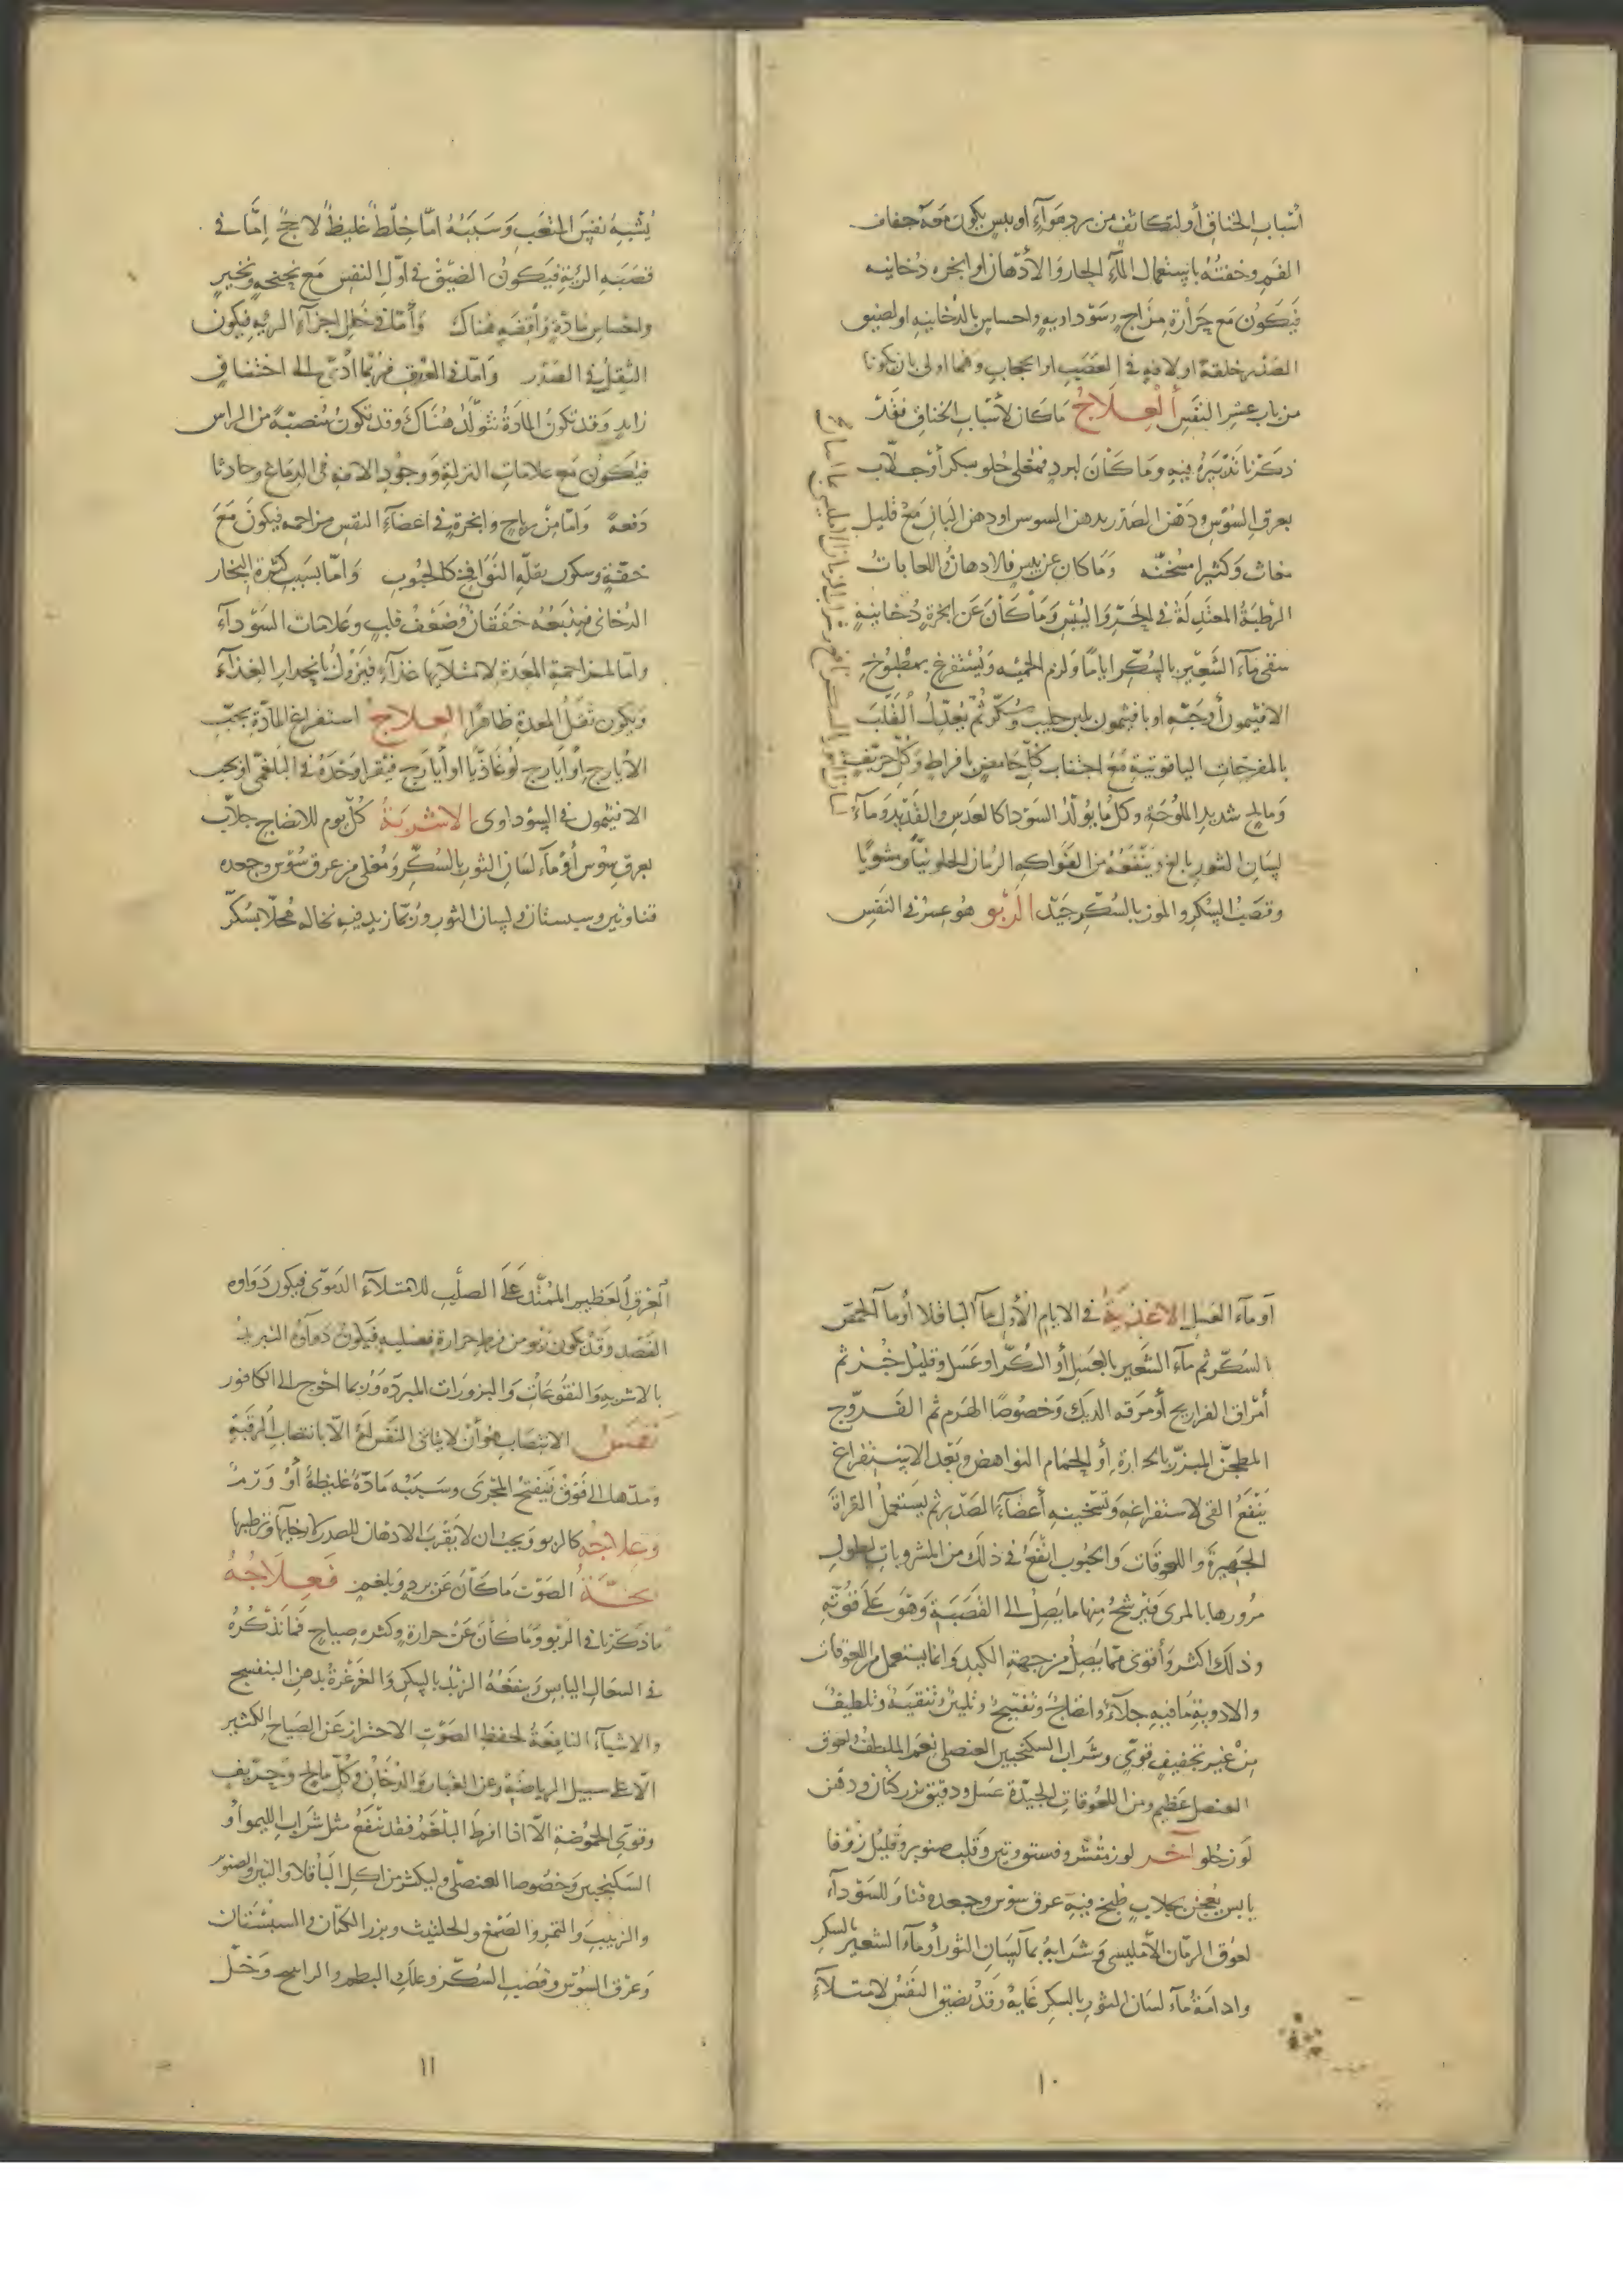 أسباب الخناق أو لتكاثف من برد هواء أو يبس يكون معه جفاف
الفم وخفته باستعمال الماء الحار والأدهان أو ابخره دخانيه
فيكون مع حرارة مزاج وسوداويه واحساس بالدخانيه او لضيق
الصدر خلقة او لافه في العصب او الحجاب وهما اولى بان يكونا
من باب عسر النفس العلاج ما كان لأسباب الخناق فقد
ذكرنا تدبيره فيه وما كان لبرد فمغلى حلو بسكر أو جلاب
بعرق السوس ودهن الصدر بدهن السوس او دهن البان مع قليل
مغاث وكثيرا مسخنه وما كان عن يبس فالادهان واللعابات
الرطبة المعتدلة في الحر واليبس وما كان عن ابخرة دخانية
سقي ماء الشعير بالسكر اياما ولزم الحميه ويستفرغ بمطبوخ
الافتيمون أو حبه او بافتيمون بلبن حليب وسكر ثم يعدل القلب
بالمفرحات الياقوتية مع اجتناب كل حامض بافراط وكل حريف
ومالح شديد الملوحة وكل ما يولد السودا كالعدس والقديد وماء
لسان الثور بالغ وينفعه من الفواكه الرمان الحلو نيا ومشويا
وقصب السكر والموز بالسكر جيد الربو هو عسر في النفس
يشبه نفس المتعب وسببه اما خلط غليظ لاحج إما في
قصبه الرئة فيكون الضيق في أول النفس مع نحنحة ونخير
واحساس بمادة واقفه هناك وأما في خلل اجزاء الريه فيكون
الثقل في الصدر واما في العرق فربما أدى الى اختناق
زايد وقد تكون المادة تتولد هناك وقد تكون منصبة من الراس
فيكون مع علامات النزلة ووجود الافه في الدماغ وحادثا
دفعة واما من رياح وابخرة في اعضاء النفس مزاحمه فيكون مع
خفة وسكون بقلة النوافخ كالحبوب واما بسبب كثرة البخار
الدخاني فيتبعه خفقان وضعف قلب وعلامات السوداء
واما لمزاحمة المعدة لامتلائها غذاء فيزول بانحدار الغذاء
ويكون ثقل المعدة ظاهرا العلاج استفراغ المادة بحب
الأيارج أو أيارج لوغاذيا او أيارج فيقرا وحده في البلغمي او بحب
الافتيمون في السوداوي الاشربة كل يوم للانضاج جلاب
بعرق سوس أو ماء لسان الثور بالسكر ومغلى من عرق سوس وجعده
قنا وتين وسبستان ولسان الثور وربما زيد فيه نخاله محلا بسكر
أو ماء العسل الاغذية في الايام الأول ماء الباقلا أو ماء الحمص
بالسكر ثم ماء الشعير بالعسل أو السكر او عسل وقليل خبز ثم
أمراق الفراريج أو مرقه الديك وخصوصا الهرم ثم الفروج
المطجن المبزر بالحرارة أو الحمام النواهض وبعد الاستفراغ
ينفع القي لاستفراغه وتسخينه أعضاء الصدر ثم يستعمل القراة
الجهيرة واللعوقات والحبوب انفع في ذلك من المشروبات لطول
مرورها بالمرى فيرشح منها ما يصل الى القصبة وهو على قوته
وذلك اكثر وأقوى مما يصل من جهة الكبد وانما يستعمل من اللعوقات
والادوية ما فيه جلاء وانضاج وتفتيح وتليين وتنقية وتلطيف
من غير تجفيف قوي وشراب السكنجبين العنصلي نعم الملطف ولعوق
العنصل عظيم ومن اللعوقات الجيدة عسل ودقيق بزر كتان ودهن
لوز حلو آخر لوز مقشر وفستق وتين وقلب صنوبر وقليل زوفا
يابس يعجن بجلاب طبخ فيه عرق سوس وجعده قنا وللسوداء
لعوق الرمان الامليسي وشرابه بماء لسان الثور أو ماء الشعير بالسكر
وادامة ماء لسان الثور بالسكر غاية وقد يضيق النفس لامتلاء
١٠
العرق العظيم الممتد على الصلب للامتلاء الدموي فيكون دواوه
الفصد وقد يكون ربو من فرط حرارة فيكون دواؤه التبريد
بالاشربه والنقوعات والبزورات المبردة وربما احوج الى الكافور
نفس الانتصاب هو أن لا يتاتى النفس الا بانتصاب الرقبة
ومدها الى فوق فينفتح المجرى وسببه مادة غليظة أو ورم
وعلاجه كالربو ويجب ان لا يقرب الادهان للصدر لارخائها وترطيبها
بحة الصوت ما كان عن برد وبلغم فعلاجه
ما ذكرنا في الربو وما كان عن حرارة وكثره صياح فما نذكره
في السعال اليابس وينفعه الزبد بالسكر والغرغرة بدهن البنفسج
والاشياء النافعة لحفظ الصوت الاحتراز عن الصياح الكثير
الا على سبيل الرياضة وعن الغبار والدخان وكل مالح وحريف
وقوي الحموضة الا اذا افرط البلغم فقد ينفع مثل شراب الليمو أو
السكنجبين وخصوصا العنصلي وليكثر من اكل الباقلا والتين والصنوبر
والزبيب والتمر والصمغ والحلتيت وبزر الكتان والسبستان
وعرق السوس وقصب السكر وعلك البطم والراسخ وخل
١١